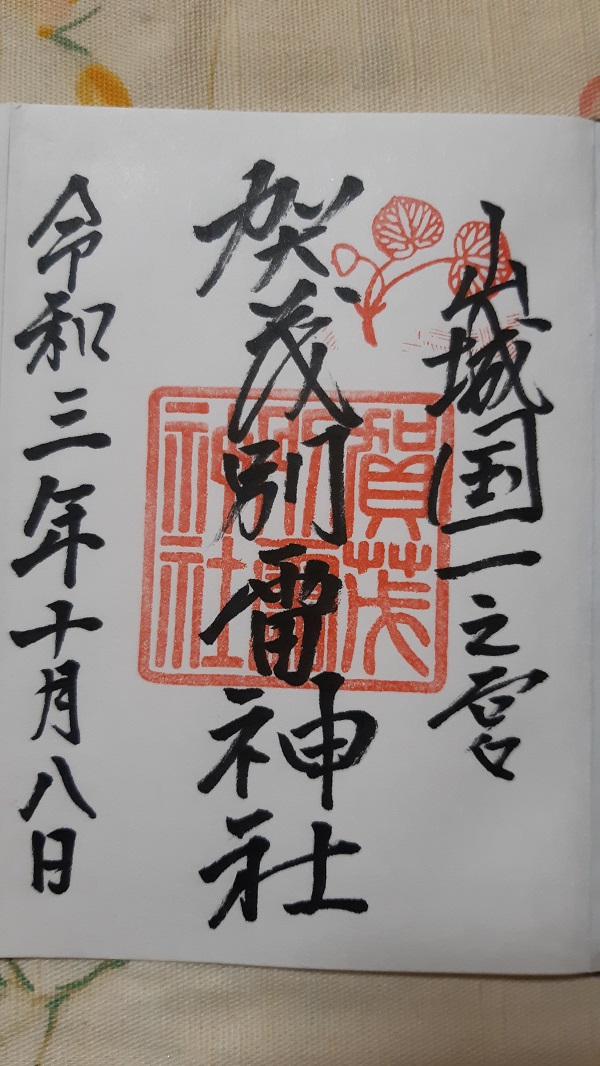 山城国一之宮
賀茂別雷神社
賀茂
別雷
神社
令和三年十月八日